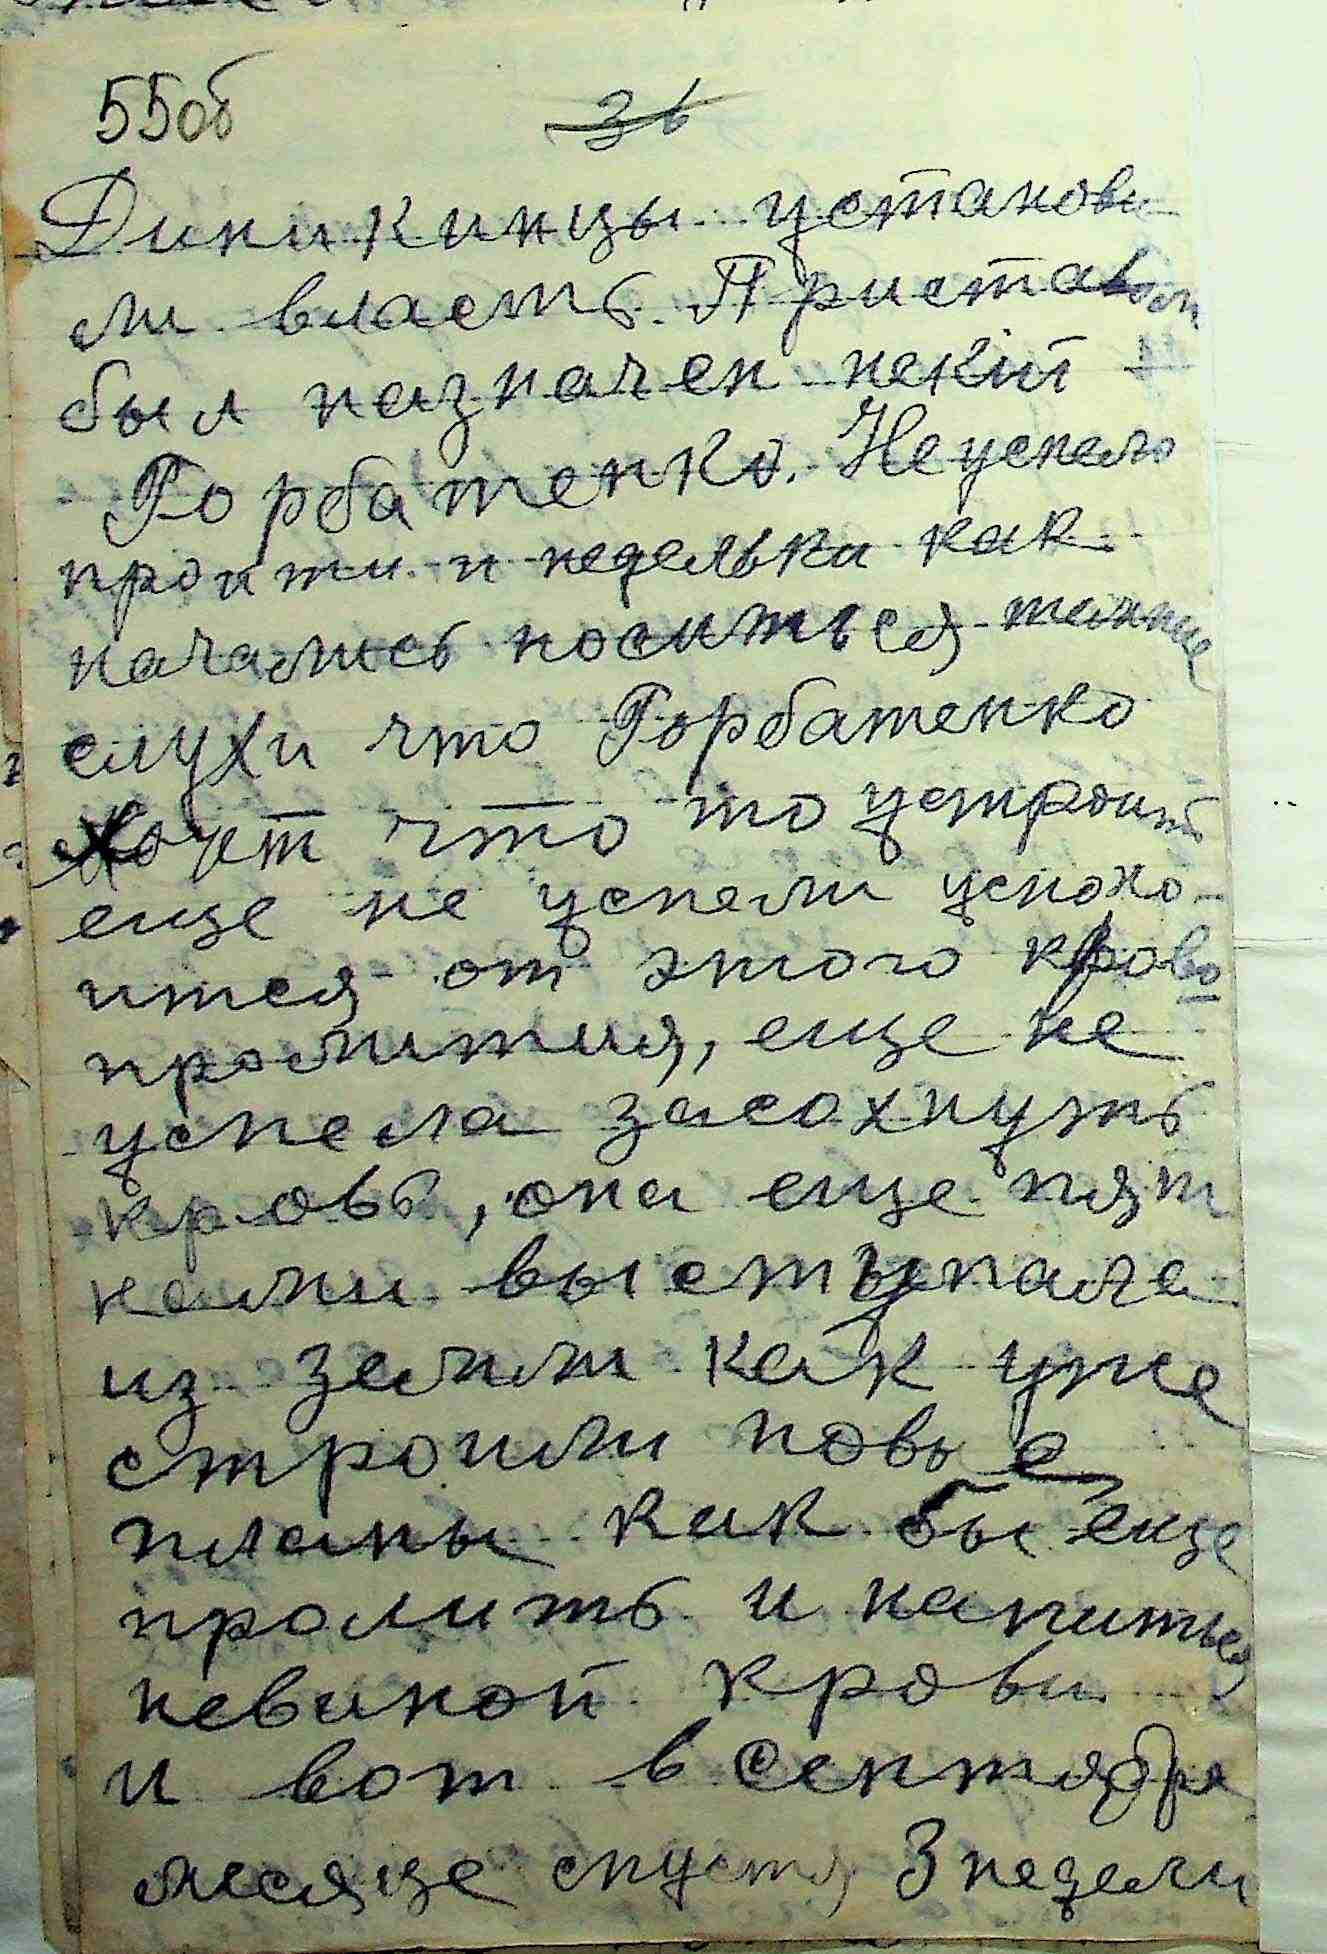 55об
36
Дикикинцы установи
ли власть. Приставом
был назначен некий
Горбатенко. Неуспело
пройти и неделька как
начались носиться такие
слухи что Горбатенко
хочет что то устроить
еще не успели успоко-
ится от этого крово
пролития, еще не
успела засохнуть
кровь, она еще пят
нами выступала
из земли как уже
строили новые
планы как бы еще
пролить и напиться
невиной крови
и вот в сентябре
месяце спустя 3 недели